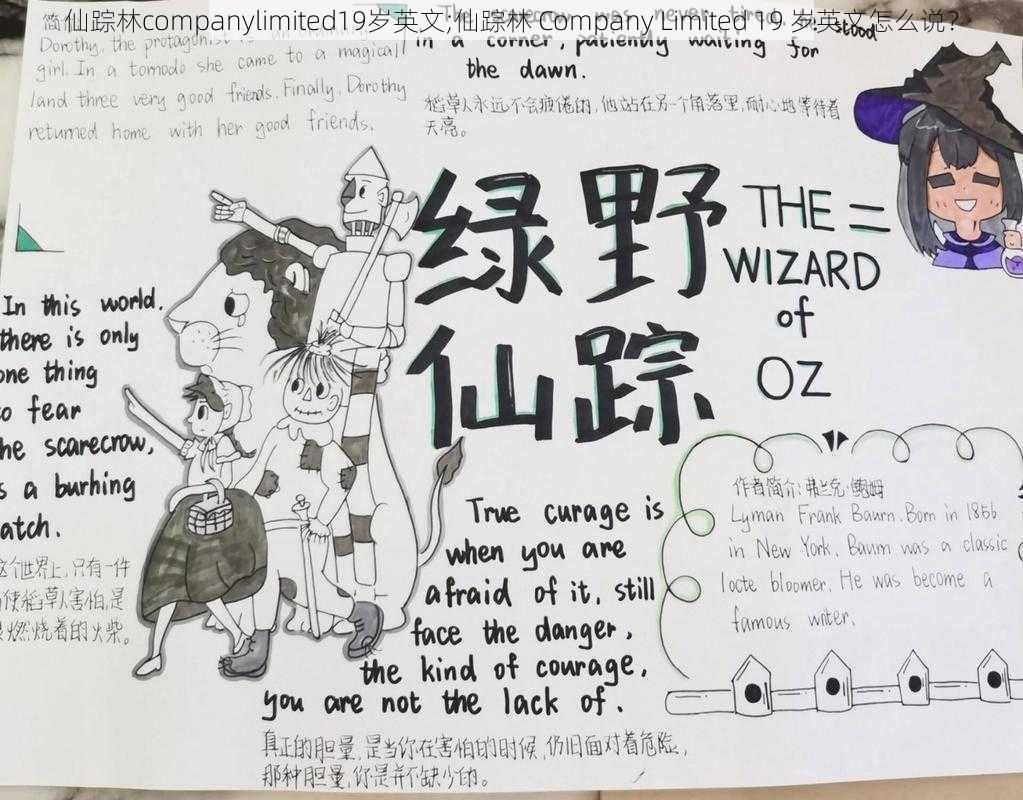 仙踪林companylimited19岁英文;仙踪林 Company Limited 19 岁英文怎么说?
简
Dorothy, the protagonist is an ordinary
girl. In a tornodo she came to a magicall
land three very good friends. Finally, Dorothy
returned home with her good friends.
The scarecrow was never tired, stood
in a corner, patiently waiting for
the dawn.
稻草人永远不会疲倦的,他站在另一个角落里,耐心地等待着
天亮。
绿野
仙踪
THE
WIZARD
of
OZ
In this world.
there is only
one thing
to fear
the scarecrow,
s a burhing
atch.
这个世界上,只有一件
使稻草人害怕,是
燃烧着的火柴。
True curage is
when you are
afraid of it, still
face the danger,
the kind of courage,
you are not the lack of.
真正的胆量,是当你在害怕的时候,仍旧面对着危险,
那种胆量,你是并不缺少的。
作者简介:弗兰克·鲍姆
Lyman Frank Baurn. Born in 1856
in New York, Baum was a classic
locte bloomer, He was become a
famous writer.